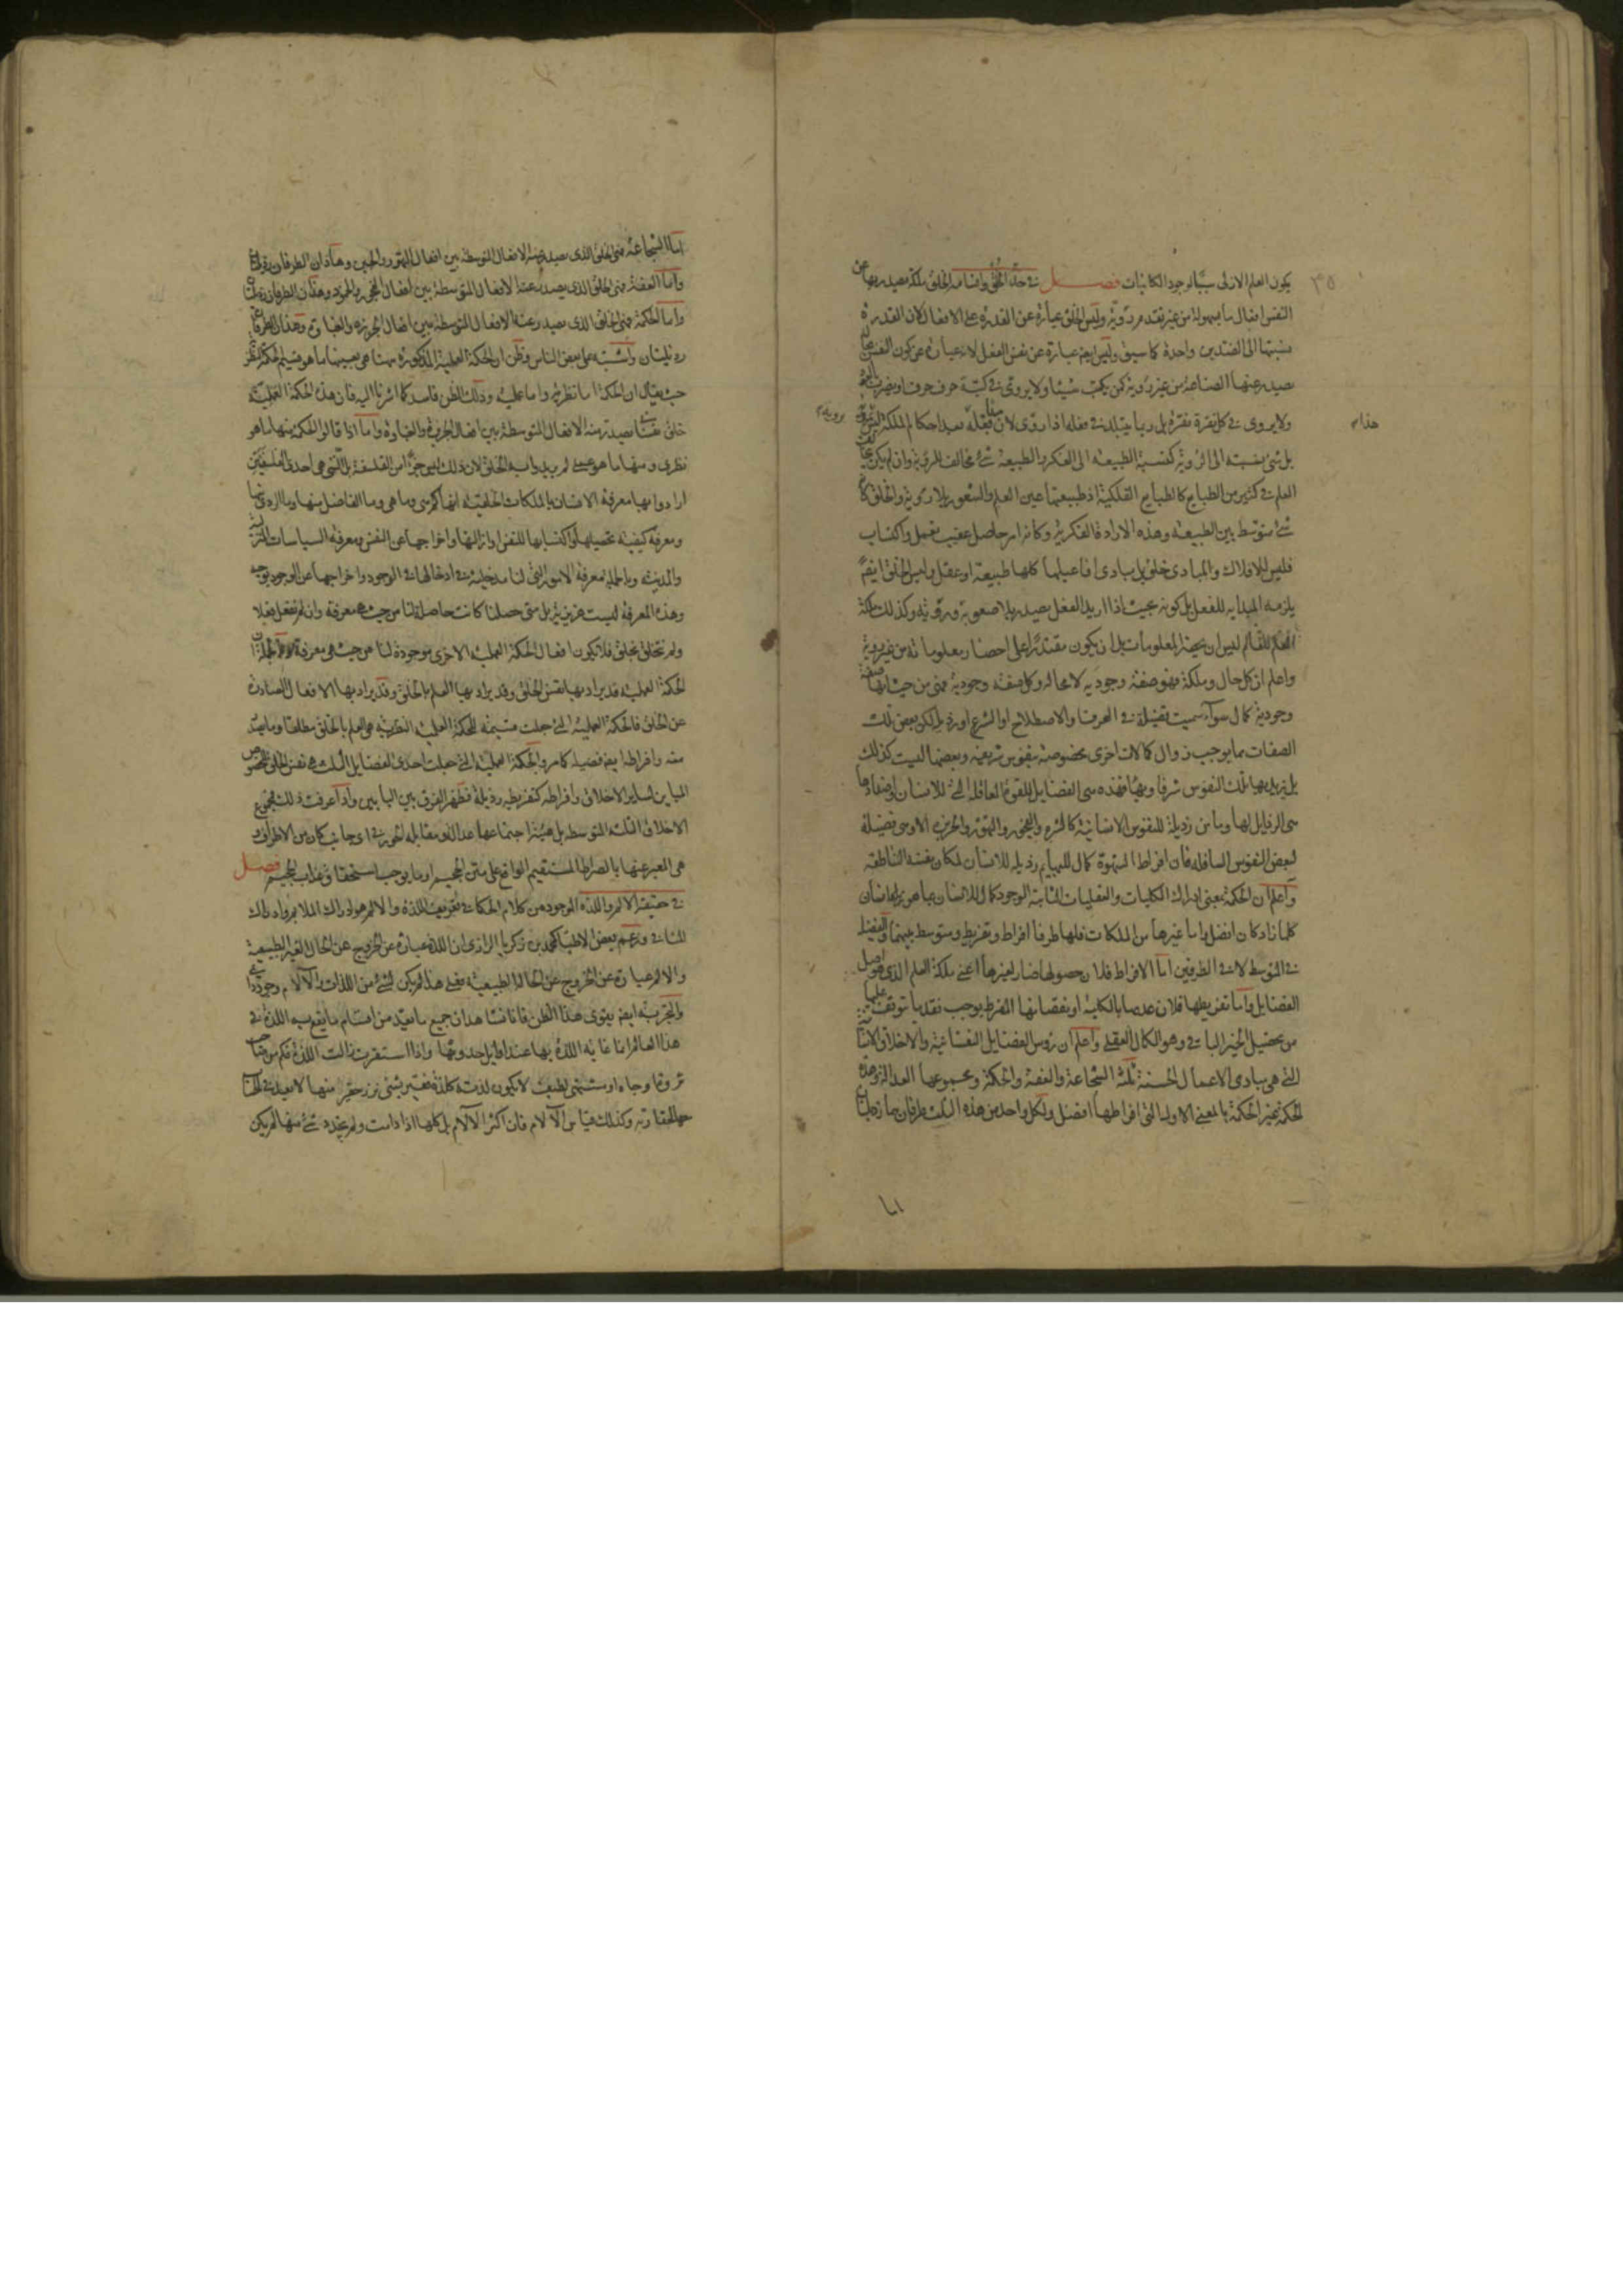 يكون العلم الازلى سببا لوجود الكائنات فصل فى حد الخلق واقسامه الخلق ملكة يصدر بها عن
النفس افعال ما بسهولة من غير تقدم روية وليس الخلق عبارة عن القدرة على الافعال لان القدرة
نسبتها الى الضدين واحدة كما سبق وليس ايضا عبارة عن نفس الفعل لانه عبارة عن كون النفس بحال
يصدر عنها الصناعة من غير روية كمن يكتب شيئا ولا يروى فى كتبه حرف حرف او يضرب بالعود
ولا يروى فى كل نقرة نقرة بل ربما يتبلد فى فعله اذا روى
بل شىء نسبته الى الروية كنسبة الطبيعة الى الفكر والطبيعة شىء مخالف للروية وان لم يكن
العلم فى كثير من الطبايع كالطبايع الفلكية اذ طبيعتها عين العلم والشعور بلا روية والخلق كانه
شىء متوسط بين الطبيعة وهذه الارادة الفكرية وكانه امر حاصل عقيب تعمل واكتساب
فليس للافلاك والمبادى خلق بل مبادى افاعيلها كلها طبيعة او عقل وليس الخلق ايضا
يلزمه المبدائية للفعل بل كونه بحيث اذا اريد الفعل يصدر بلا صعوبة وروية وكذلك ملكة
العلم للعالم ليس ان يحضر المعلومات بل ان يكون مقتدرا على احضار معلوماته من غير روية
واعلم ان كل حال وملكة فهو صفة وجودية لا محالة وكل صفة وجودية فهى من حيث انها صفة
وجودية كمال سواء سميت فضيلة فى العرف والاصطلاح او الشرع او رذيلة لكن بعض تلك
الصفات مما يوجب زوال كمالات اخرى مخصوصة بنفوس شريفة وبعضها ليست كذلك
بل يزيد بها تلك النفوس شرفا وبهاء فهذه هى الفضايل للقوة العاقلة التى للانسان واضدادها
هى الرذايل لها وما من رذيلة للنفوس الانسانية كالشره والفجور والتهور والجربزة الا وهى فضيلة
لبعض النفوس السافلة فان افراط الشهوة كمال للبهايم رذيلة للانسان لمكان نفسه الناطقة
واعلم ان الحكمة بمعنى ادراك الكليات والعقليات الثابتة الوجود كمال للانسان بما هو انسان
كلما زاد كان افضل واما غيرها من الملكات فلها طرفا افراط وتفريط ومتوسط بينهما والفضيلة
فى المتوسط لا فى الطرفين اما الافراط فلان حصولها ضار لغيرها اعنى ملكة العلم الذى هو اصل
الفضايل واما تفريطها فلان عدمها بالكلية او نقصانها المفرط يوجب فقد ما توقف عليها
من تحصيل الخير الباقى وهو الكمال العقلى واعلم ان رؤس الفضايل النفسانية والاخلاق الانسانية
التى هى مبادى الاعمال الحسنة ثلثة الشجاعة والعفة والحكمة ومجموعها العدالة
الحكمة غير الحكمة بالمعنى الاول التى افراطها افضل ولكل واحد من هذه الثلث طرفان هما رذيلتان
اما
اما الشجاعة فهى الخلق الذى يصدر منه الافعال المتوسطة بين افعال التهور والجبن وهاذان الطرفان رذيلتان
واما العفة فهى الخلق الذى يصدر عنه الافعال المتوسطة بين افعال الفجور والخمود وهذان الطرفان رذيلتان
واما الحكمة فهى الخلق الذى يصدر عنه الافعال المتوسطة بين افعال الجربزة والغباوة وهذان الطرفان
رذيلتان واشتبه على بعض الناس وظن ان الحكمة العملية المذكورة ههنا هى بعينها ما هو قسيم الحكمة النظرية
حيث يقال ان الحكمة اما نظرية واما عملية وذلك الظن فاسد كما اشرنا اليه فان هذه الحكمة العملية
خلق نفسانى يصدر منه الافعال المتوسطة بين افعال الجربزة والغباوة واما اذا قالوا الحكمة منها ما هو
نظرى ومنها ما هو عملى لم يريدوا به الخلق لان ذلك ليس جزءا من الفلسفة بل التى هى احدى الفلسفتين
ارادوا بها معرفة الانسان بالملكات الخلقية انها كم هى وما هى وما الفاضل منها وما الردى منها
ومعرفة كيفية تحصيلها واكتسابها للنفس او ازالتها واخراجها عن النفس ومعرفة السياسات المنزلية
والمدنية وبالجملة معرفة الامور التى لنا مدخلية فى ادخالها فى الوجود واخراجها عن الوجود بوجه
وهذه المعرفة ليست غريزية بل متى حصلنا كانت حاصلة لنا من حيث هى معرفة وان لم نفعل فعلا
ولم نتخلق بخلق فلا يكون افعال الحكمة العملية الاخرى موجودة لنا من حيث هى معرفة
الحكمة العملية قد يراد بها نفس الخلق وقد يراد بها العلم بالخلق وقد يراد بها الافعال الصادرة
عن الخلق فالحكمة العملية التى جعلت قسيمة للحكمة النظرية هى العلم بالخلق مطلقا وما يصدر
منه وافراطه ايضا فضيلة كما مر والحكمة العملية التى جعلت احدى الفضايل الثلث هى نفس الخلق المخصوص
المباين لساير الاخلاق وافراطه كتفريطه رذيلة فظهر الفرق بين البابين واذا عرفت ذلك فمجموع
الاخلاق الثلثة المتوسطة بل هيئة اجتماعها عدالة ومقابله الجور فى اى جانب كان من الاطراف
هى المعبر عنها بالصراط المستقيم الواقع على متن الجحيم او ما يوجب استحقاق عذاب الجحيم فصل
فى حقيقة الالم واللذة الموجود من كلام الحكما فى تعريف اللذة والالم هو ادراك الملايم وادراك
المنافى وزعم بعض الاطبا كمحمد بن زكريا الرازى ان اللذة عبارة عن الخروج عن الحال الغير الطبيعية
والالم عبارة عن الخروج عن الحالة الطبيعية فعلى هذا لم يكن لشىء من اللذات والآلام وجود ذاتى
والتجربة ايضا يقوى هذا الظن فانا نشاهد ان جميع ما يعد من اقسام ما يقع به اللذة فى
هذا العالم انما غاية اللذة بها عند اوايل حدوثها واذا استقرت زالت اللذة فكم من صاحب
ثروة وجاه او مشتهى لطيف لا يكون لذته كلذة فقير بشىء نزر حقير منها
وكذلك قياس الآلام فان اكثر الآلام بل كلها اذا دامت ولم يتجدد شىء منها لم يكن